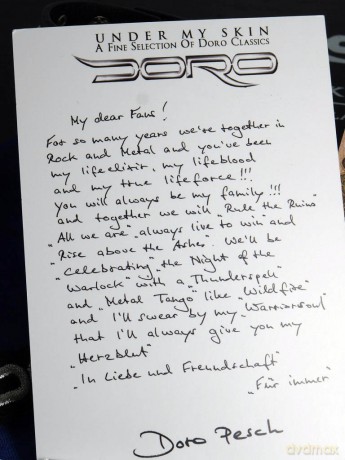 UNDER MY SKIN
A FINE SELECTION OF DORO CLASSICS
DORO
My dear Fans!
For so many years we're together in
Rock and Metal and you've been
my lifeelixir, my lifeblood
and my true lifeforce!!!
you will always be my family!!!
and together we will "Rule the Ruins"
"All we are" "always live to win" and
"Rise above the Ashes". We'll be
"Celebrating" "the Night of the
Warlock" with a "Thunderspell"
and "Metal Tango" like "Wildfire"
and I'll swear by my "Warriorsoul"
that I'll always give you my
"Herzblut"
"In Liebe und Freundschaft"
"Für immer"
Doro Pesch
dvdmax